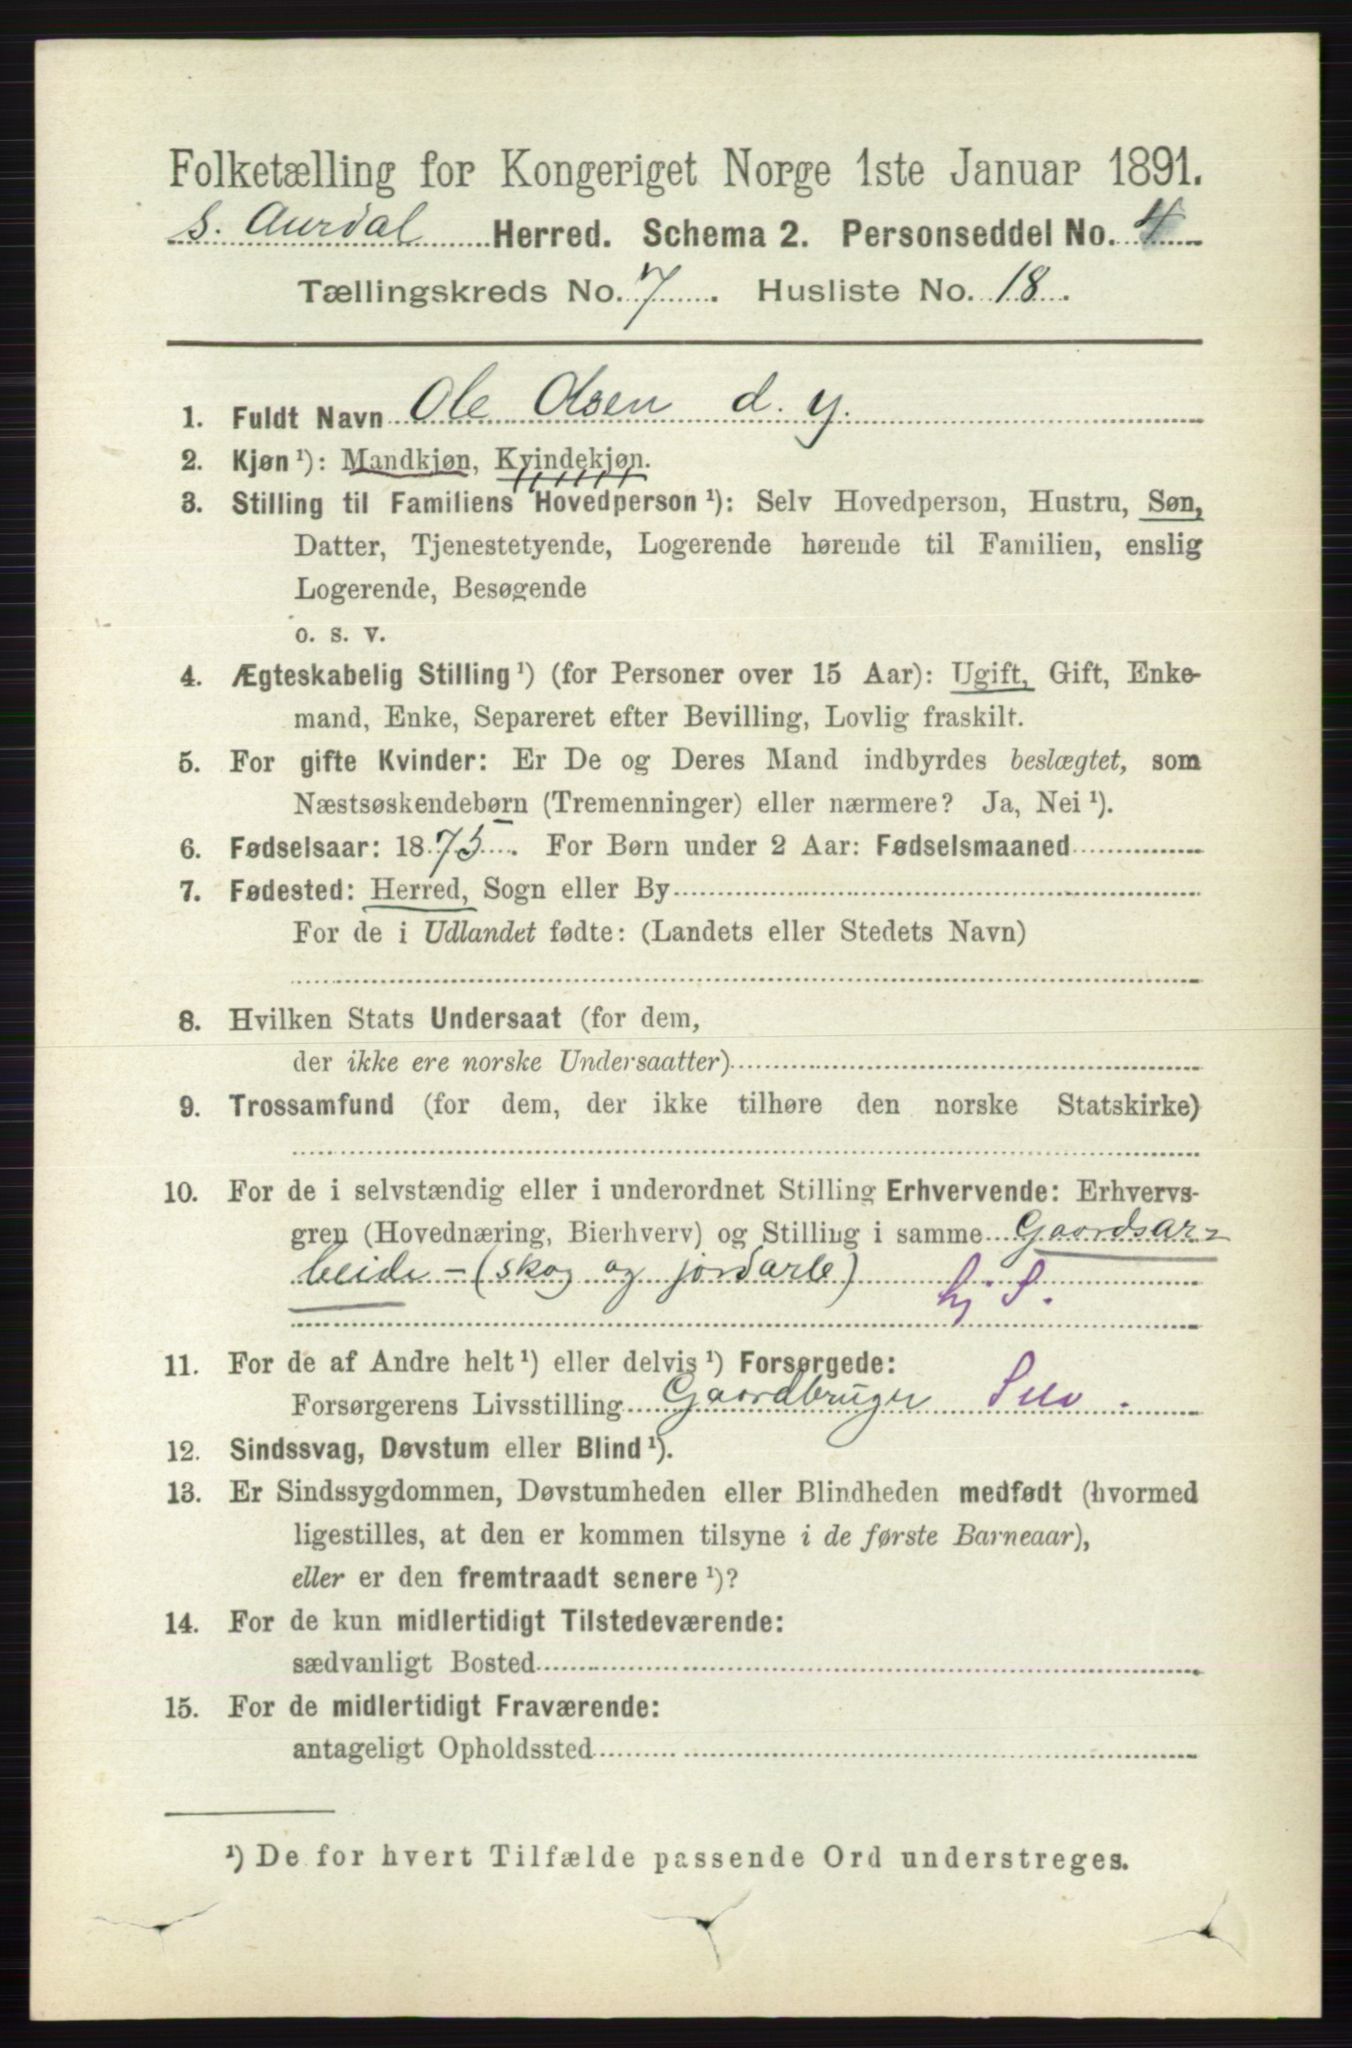 Folketælling for Kongeriget Norge 1ste Januar 1891.
S. Aurdal Herred. Schema 2. Personseddel No. 4
Tællingskreds No. 7. Husliste No. 18.
1. Fuldt Navn Ole Olsen d. y.
2. Kjøn ¹): Mandkjøn, Kvindekjøn.
3. Stilling til Familiens Hovedperson ¹): Selv Hovedperson, Hustru, Søn,
Datter, Tjenestetyende, Logerende hørende til Familien, enslig
Logerende, Besøgende
o. s. v.
4. Ægteskabelig Stilling ¹) (for Personer over 15 Aar): Ugift, Gift, Enke-
mand, Enke, Separeret efter Bevilling, Lovlig fraskilt.
5. For gifte Kvinder: Er De og Deres Mand indbyrdes beslægtet, som
Næstsøskendebørn (Tremenninger) eller nærmere? Ja, Nei ¹).
6. Fødselsaar: 1875. For Børn under 2 Aar: Fødselsmaaned
7. Fødested: Herred, Sogn eller By
For de i Udlandet fødte: (Landets eller Stedets Navn)
8. Hvilken Stats Undersaat (for dem,
der ikke ere norske Undersaatter)
9. Trossamfund (for dem, der ikke tilhøre den norske Statskirke)
10. For de i selvstændig eller i underordnet Stilling Erhvervende: Erhvervs-
gren (Hovednæring, Bierhverv) og Stilling i samme Gaardsar-
beide - (skog og jordarb)
hj S.
11. For de af Andre helt ¹) eller delvis ¹) Forsørgede:
Forsørgerens Livsstilling Gaardbruger Selv.
12. Sindssvag, Døvstum eller Blind ¹).
13. Er Sindssygdommen, Døvstumheden eller Blindheden medfødt (hvormed
ligestilles, at den er kommen tilsyne i de første Barneaar),
eller er den fremtraadt senere ¹)?
14. For de kun midlertidigt Tilstedeværende:
sædvanligt Bosted
15. For de midlertidigt Fraværende:
antageligt Opholdssted
¹) De for hvert Tilfælde passende Ord understreges.